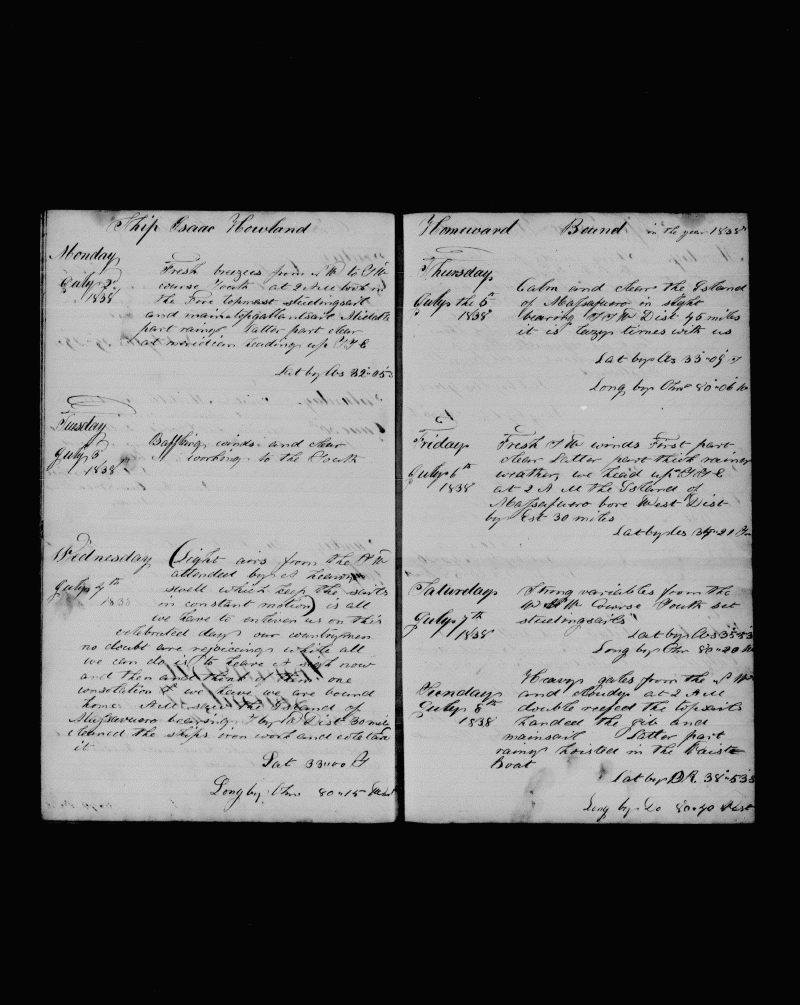 Ship Isaac Howland
Monday
July 2d
1838
Fresh breezes from N W to S W
course South at 2 A M took in
the Fore topmast studdingsail
and main topgallantsail Middle
part rainy Latter part clear
at meridian heading up S S E
Lat by Obs 32"05
Tuesday
July 3
1838
Baffling winds and clear
working to the South
Wednesday
July 4th
1838
(Light airs from the N W
attended by A heavy
swell which keep the sails
in constant motion) is all
we have to enliven us on this
celebrated day our countrymen
no doubt are rejoiceing while all
we can do is to heave A sigh now
and then and think of them one
consolation if we have we are bound
home A M saw the Island of
Massafuero bearing S by W Dist 30 miles
cleaned the ships iron work and
it
Lat 33"00 S
Long by Chro 80"15 West
Homeward Bound in the year 1838
Thursday
July the 5
1838
Calm and clear the Island
of Massafuero in sight
bearing S S W Dist 45 miles
it is lazy times with us
Lat by Obs 33"09 S
Long by Chro 80"06 W
Friday
July 6th
1838
Fresh S W winds First part
clear Latter part thick rainy
weather we head up S S E
at 2 A M the Island of
Massafuero bore West Dist
by Est 30 miles
Lat by Obs 34"21
Saturday
July 7th
1838
Strong variables from the
W N W Course South set
studdingsails
Lat by Obs 35"53
Long by Chro 80"20 W
Sunday
July 8th
1838
Heavy gales from the N W
and cloudy at 2 A M
double reefed the topsails
handed the gib and
mainsail Latter part
rainy hoisted in the Waist
Boat
Lat by D R. 38"53
Long by Do 80"40 West